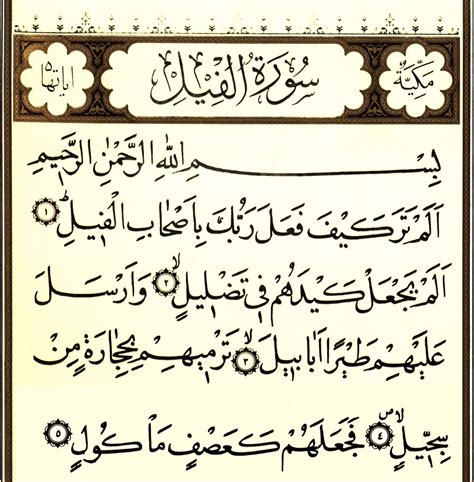 مَكِّيَّةٌ سُورَةُ الْفِيلِ اٰيَاتُهَا ٥
بِسْمِ اللّٰهِ الرَّحْمٰنِ الرَّحِيمِ
اَلَمْ تَرَ كَيْفَ فَعَلَ رَبُّكَ بِاَصْحَابِ الْفِيلِۜ ١
اَلَمْ يَجْعَلْ كَيْدَهُمْ فِي تَضْلِيلٍۙ ٢ وَاَرْسَلَ
عَلَيْهِمْ طَيْرًا اَبَابِيلَۙ ٣ تَرْمِيهِمْ بِحِجَارَةٍ مِنْ
سِجِّيلٍۙۖ ٤ فَجَعَلَهُمْ كَعَصْفٍ مَأْكُولٍ ٥